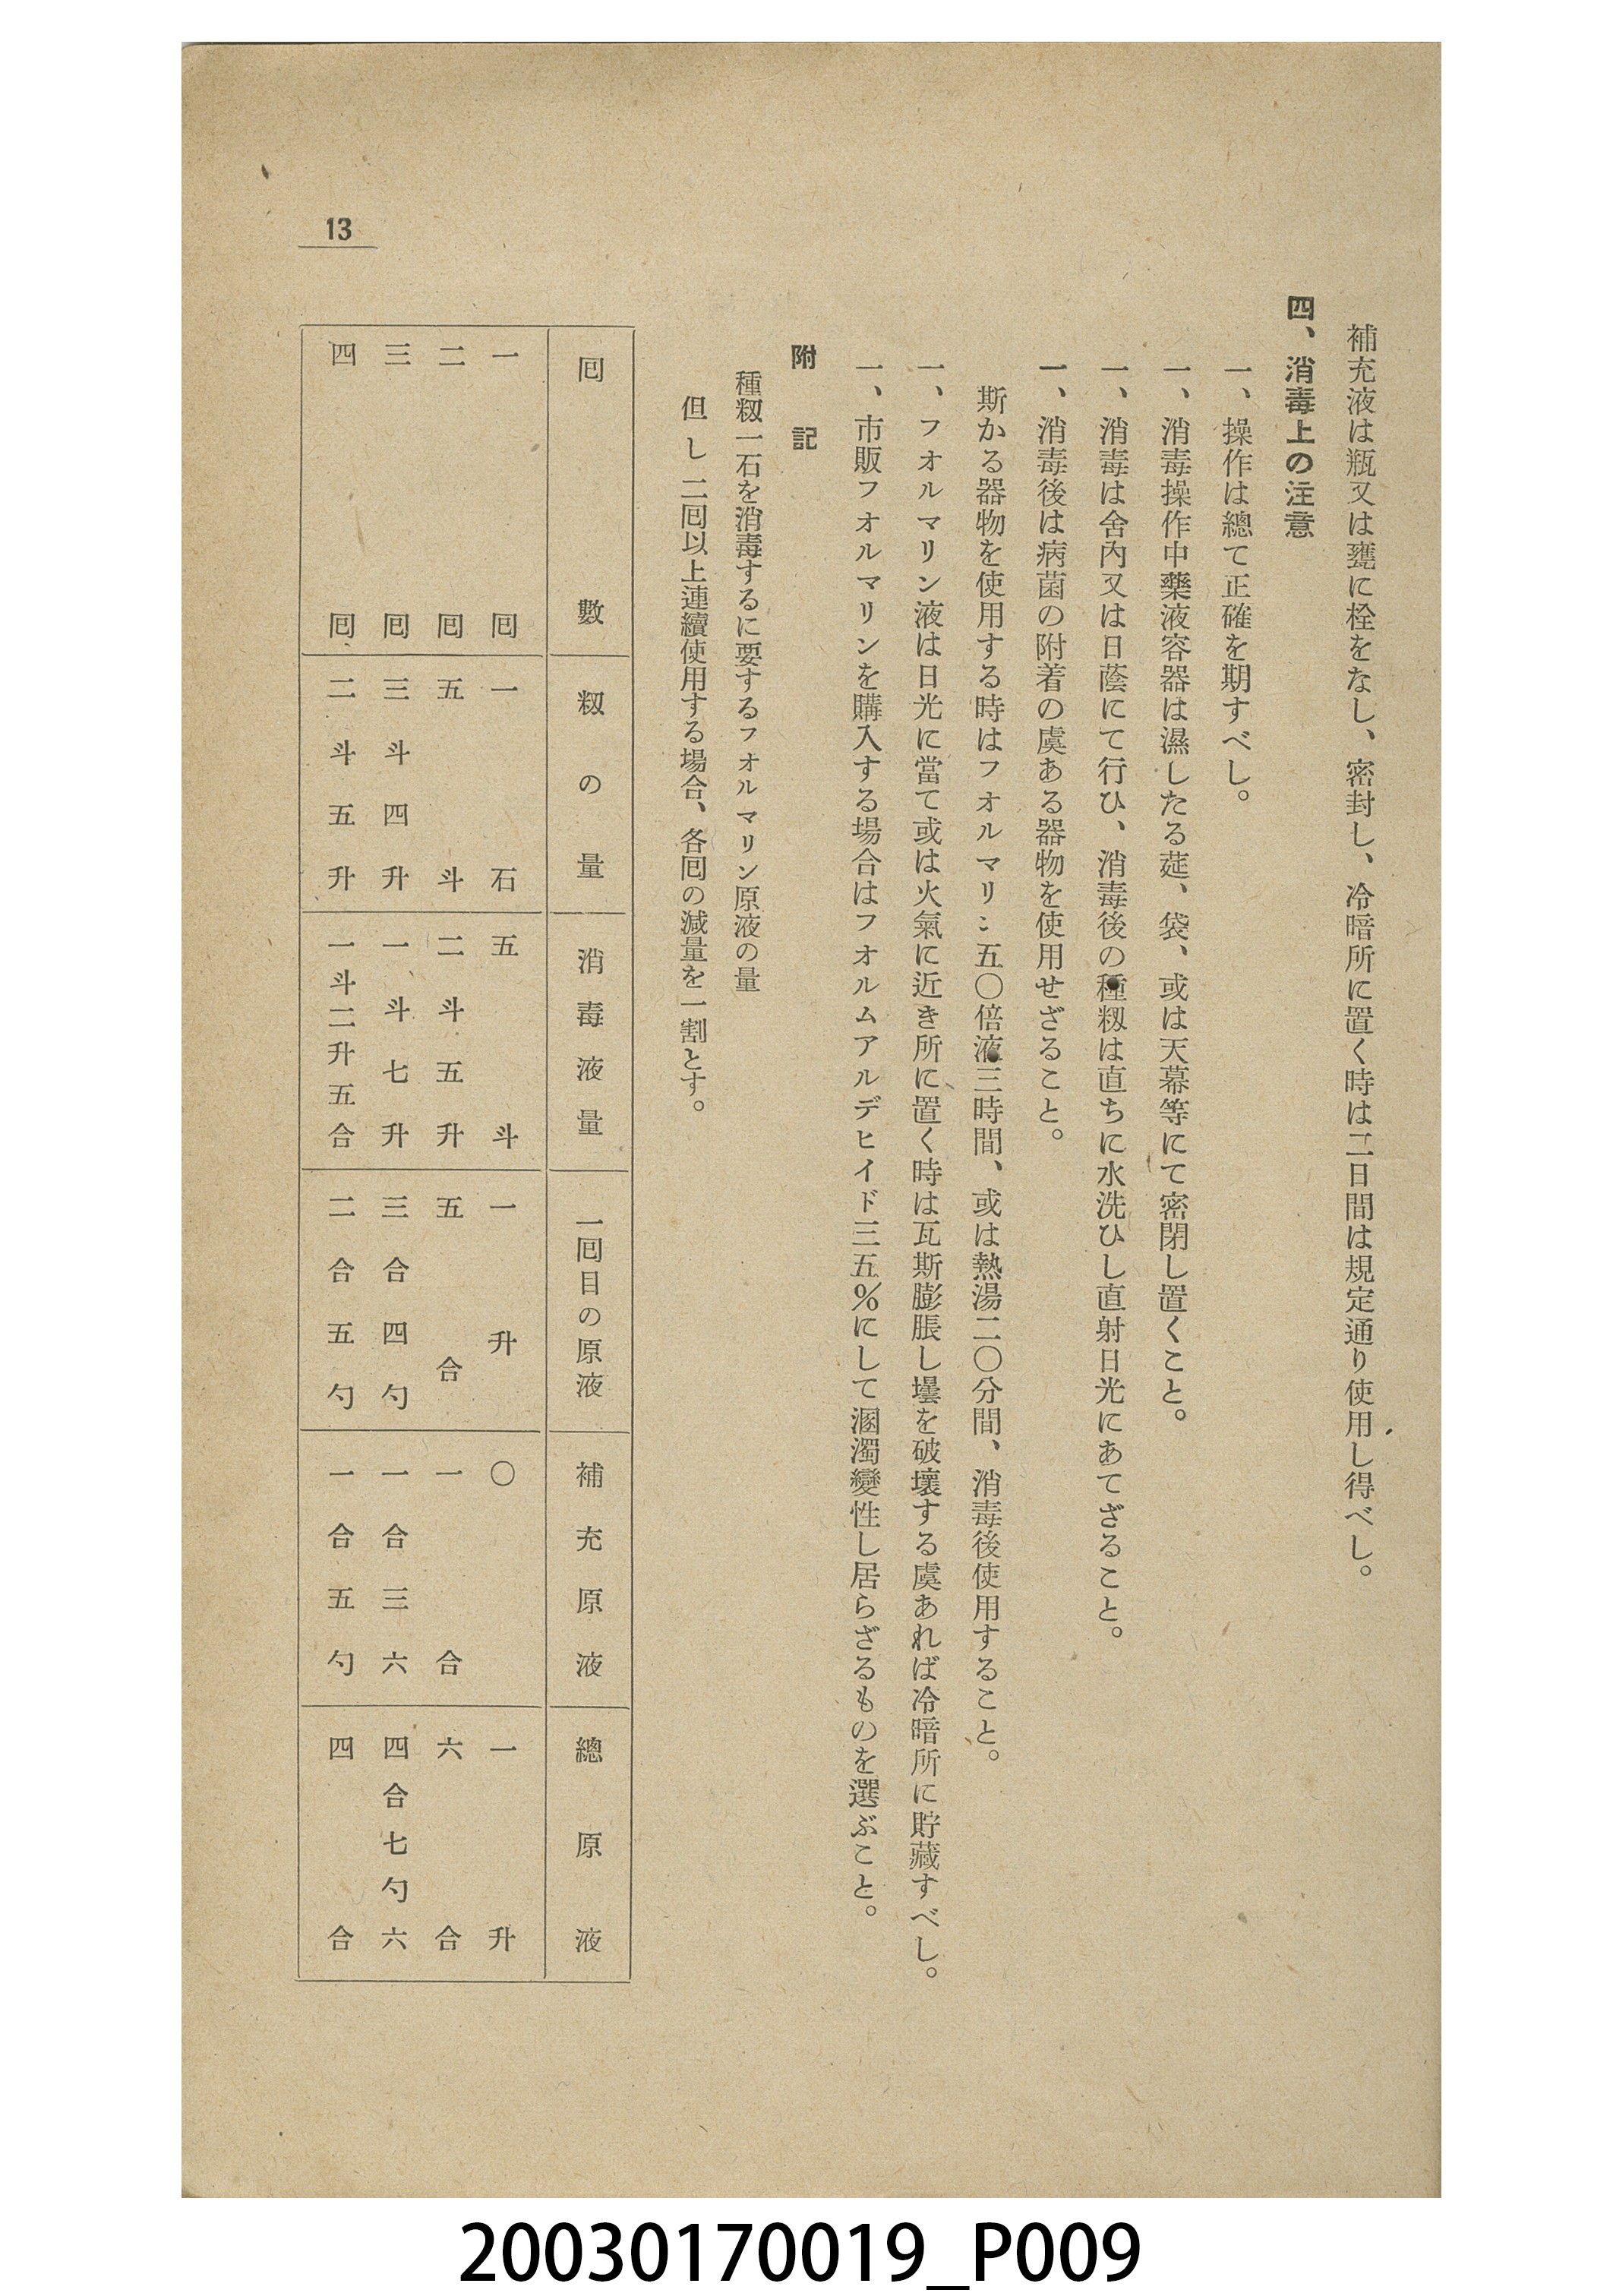 補充液は瓶又は甕に栓をなし、密封し、冷暗所に置く時は二日間は規定通り使用し得べし。
四、消毒上の注意
一、操作は總て正確を期すべし。
一、消毒操作中藥液容器は濕したる莚、袋、或は天幕等にて密閉し置くこと。
一、消毒は舍內又は日蔭にて行ひ、消毒後の種籾は直ちに水洗ひし直射日光にあてざること。
一、消毒後は病菌の附着の虞ある器物を使用せざること。
斯かる器物を使用する時はフオルマリン五〇倍液三時間、或は熱湯二〇分間、消毒後使用すること。
一、フオルマリン液は日光に當て或は火氣に近き所に置く時は瓦斯膨脹し壜を破壞する虞あれば冷暗所に貯藏すべし。
一、市販フオルマリンを購入する場合はフオルムアルデヒイド三五%にして溷濁變性し居らざるものを選ぶこと。
附記
種籾一石を消毒するに要するフオルマリン原液の量
但し二囘以上連續使用する場合、各囘の減量を一割とす。
囘數 籾の量 消毒液量 一囘目の原液 補充原液 總原液
一囘 一石 五斗 一升 〇 一升
二囘 五斗 二斗五升 五合 一合 六合
三囘 三斗四升 一斗七升 三合四勺 一合三六 四合七勺六
四囘 二斗五升 一斗二升五合 二合五勺 一合五勺 四合
13
20030170019_P009